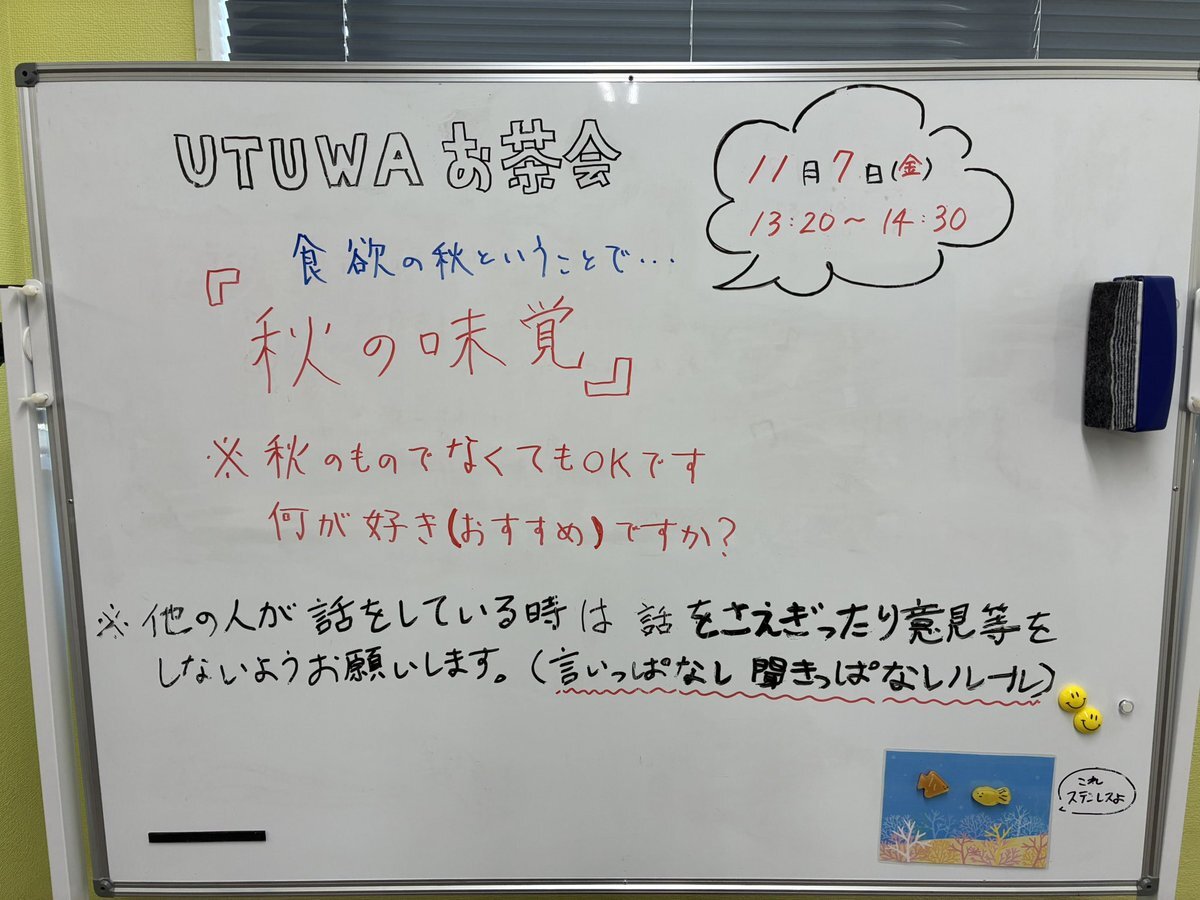 UTUWA お茶会
11月7日(金)
13:20〜14:30
食欲の秋ということで...
『秋の味覚』
※秋のものでなくてもOKです
何が好き(おすすめ)ですか?
※他の人が話をしている時は 話をさえぎったり意見等を
しないようお願いします。(言いっぱなし 聞きっぱなしルール)
これ
ステンレスよ